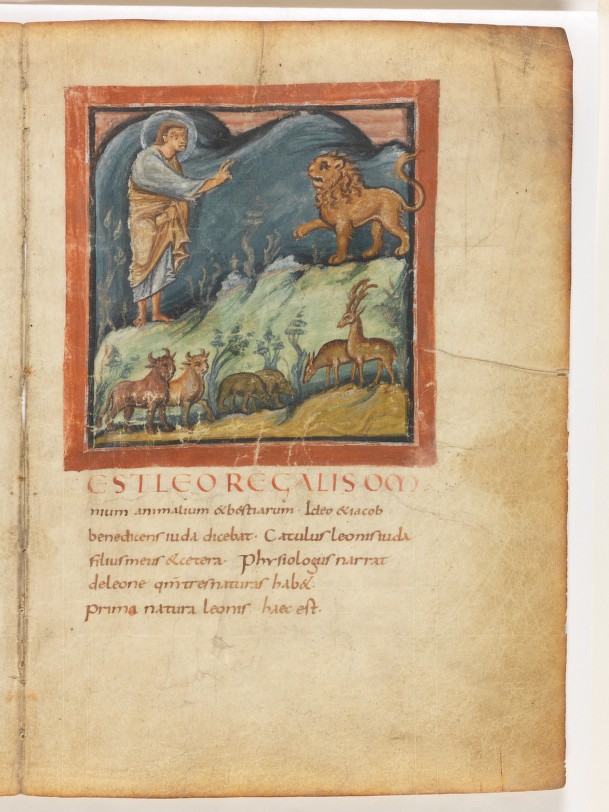 EST LEO REGALIS OM
nium animalium & bestiarum · Ideo & iacob
benedicens iuda dicebat · Catulus leonis iuda
filius meus & cetera · Physiologus narrat
de leone qm̄ tres naturas hab&·
prima natura leonis haec est·